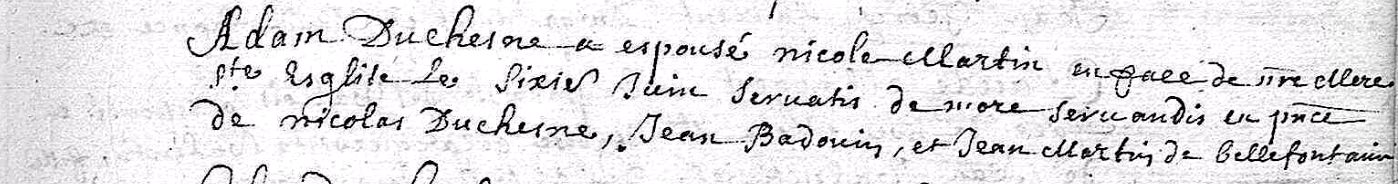 Adam Duchesne a espousé nicole Martin en face de nre Mere
Ste Esglise le sixie Juin servatis de more servandis en pnce
de nicolas Duchesne, Jean Badouin, et Jean Martin de bellefontain